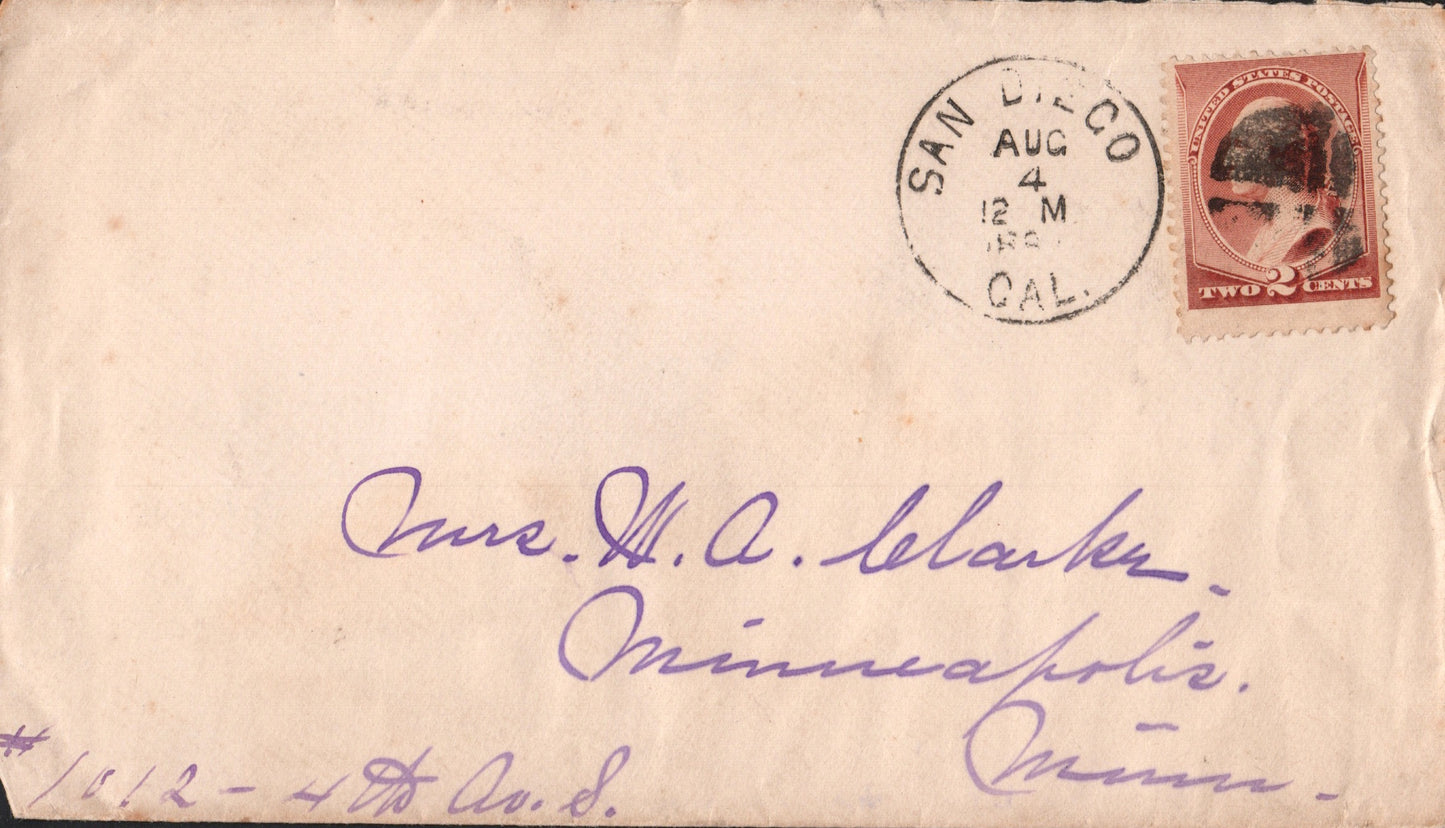 SAN DIEGO
AUG
4
12 M
CAL.
UNITED STATES POSTAGE
TWO 2 CENTS
Mrs. W. A. Clarke.
Minneapolis.
Minn.
#1012 - 4th Av. S.